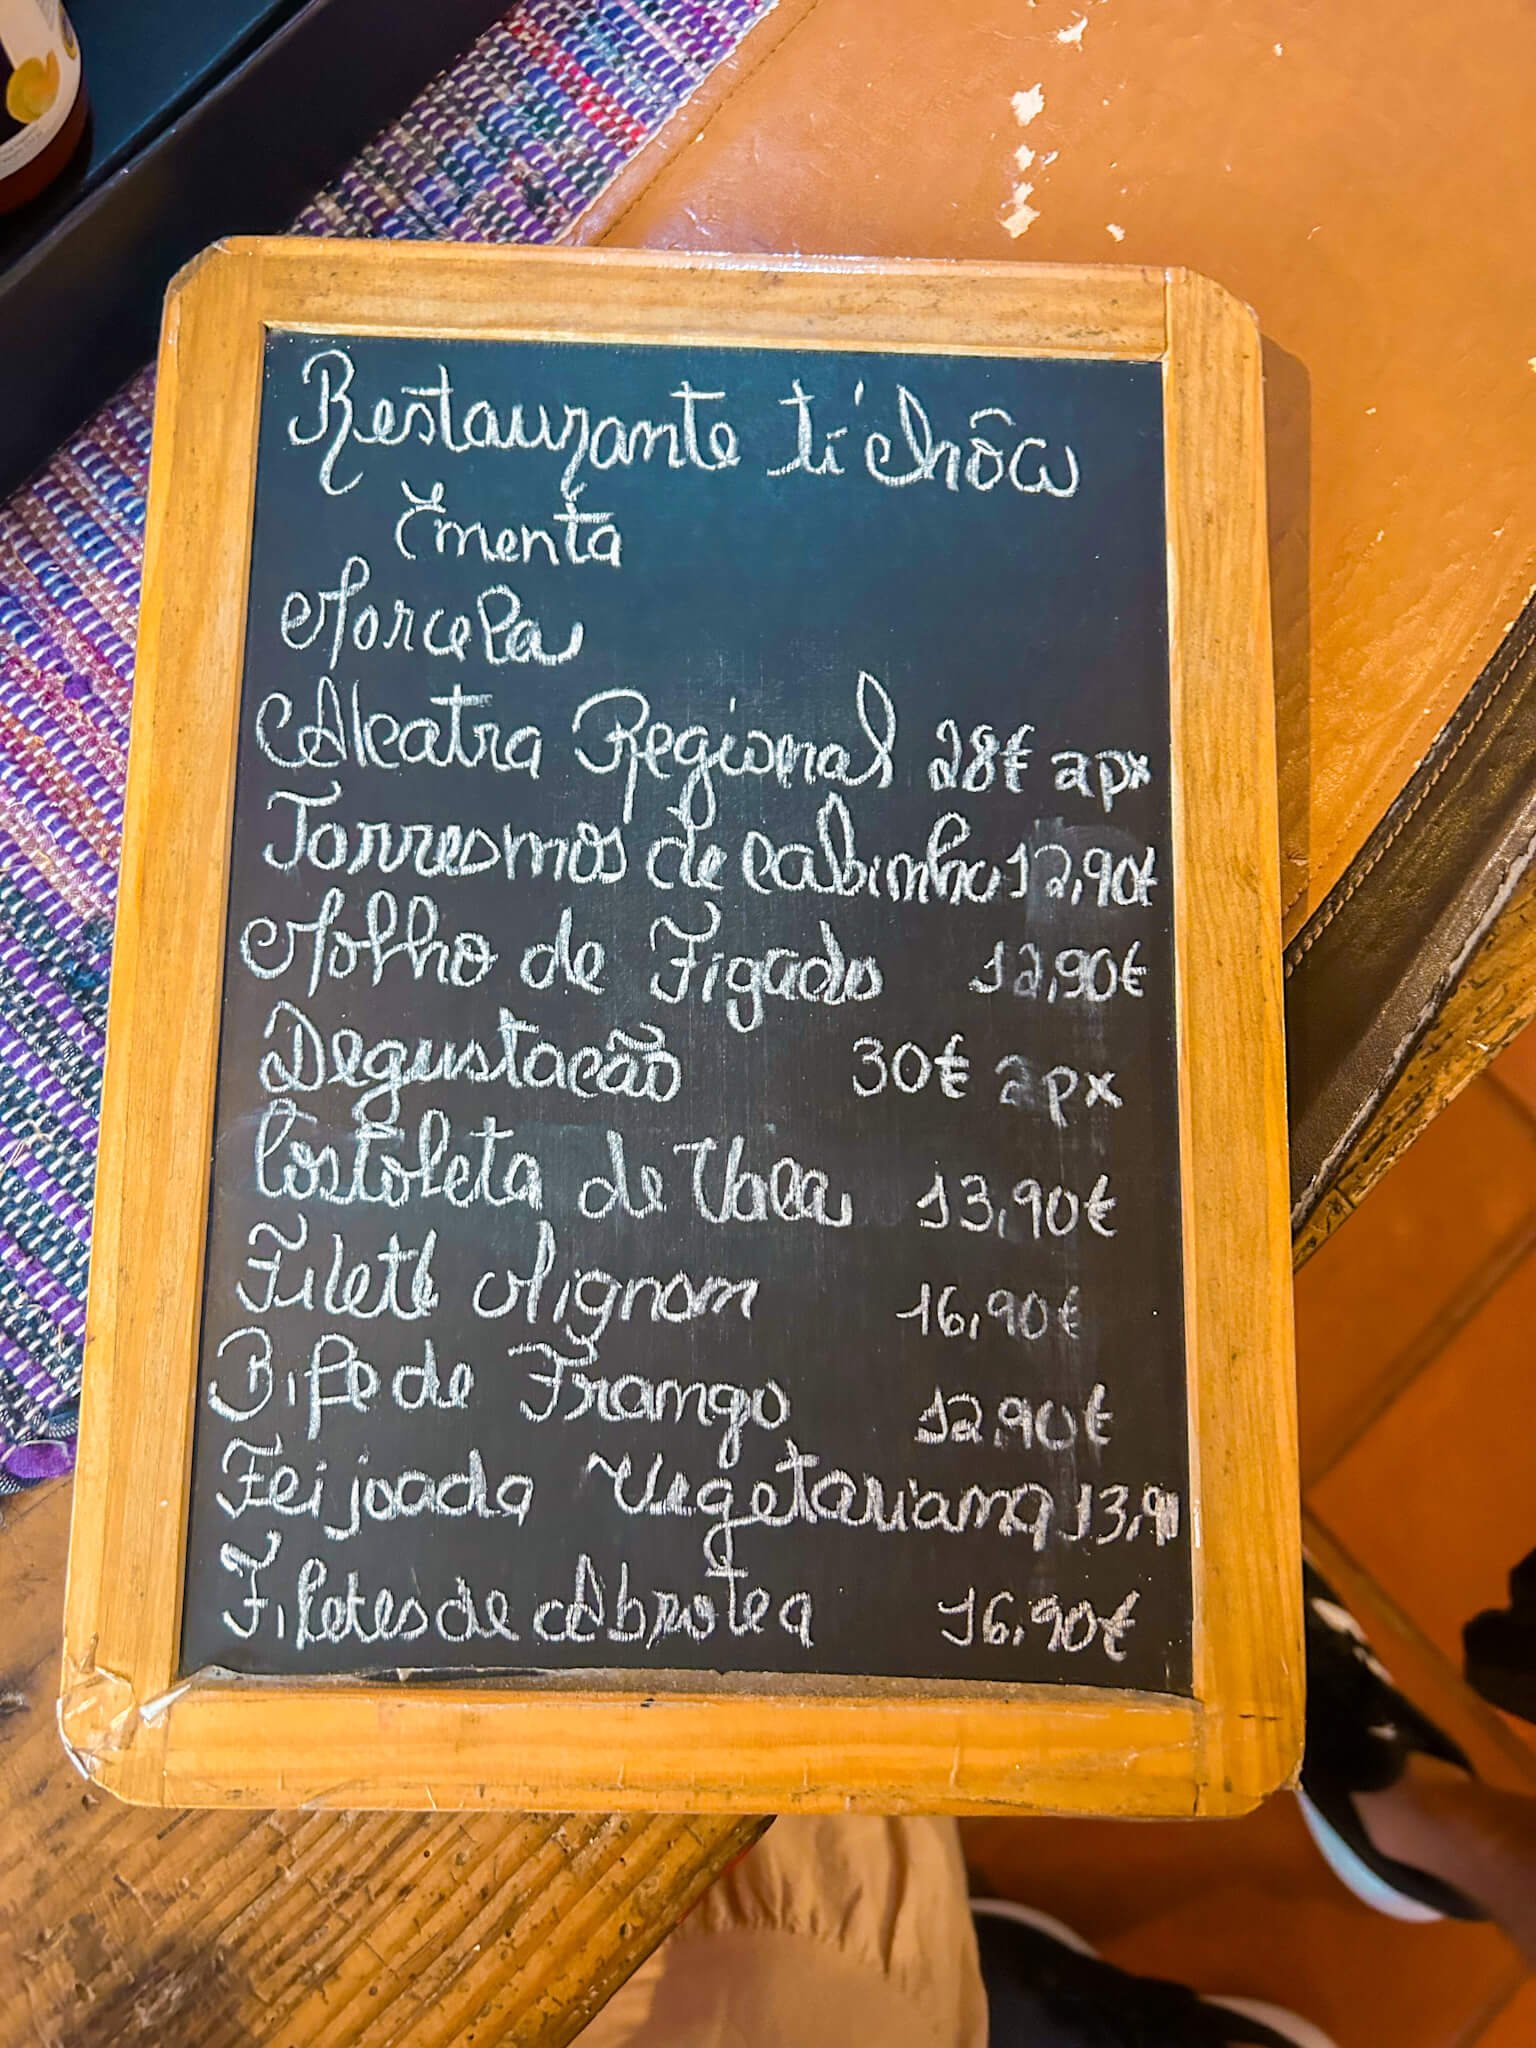 Restaurante ti'chôa
Ementa
Morcela
Alcatra Regional 28€ apx
Torresmos de Cabinho 12,90€
Molho de Figado 12,90€
Degustacão 30€ apx
Costoleta de Vaca 13,90€
Filete Mignom 16,90€
Bife de Frango 12,90€
Feijoada Vegetariana 13,90
Filetes de Abrotea 16,90€